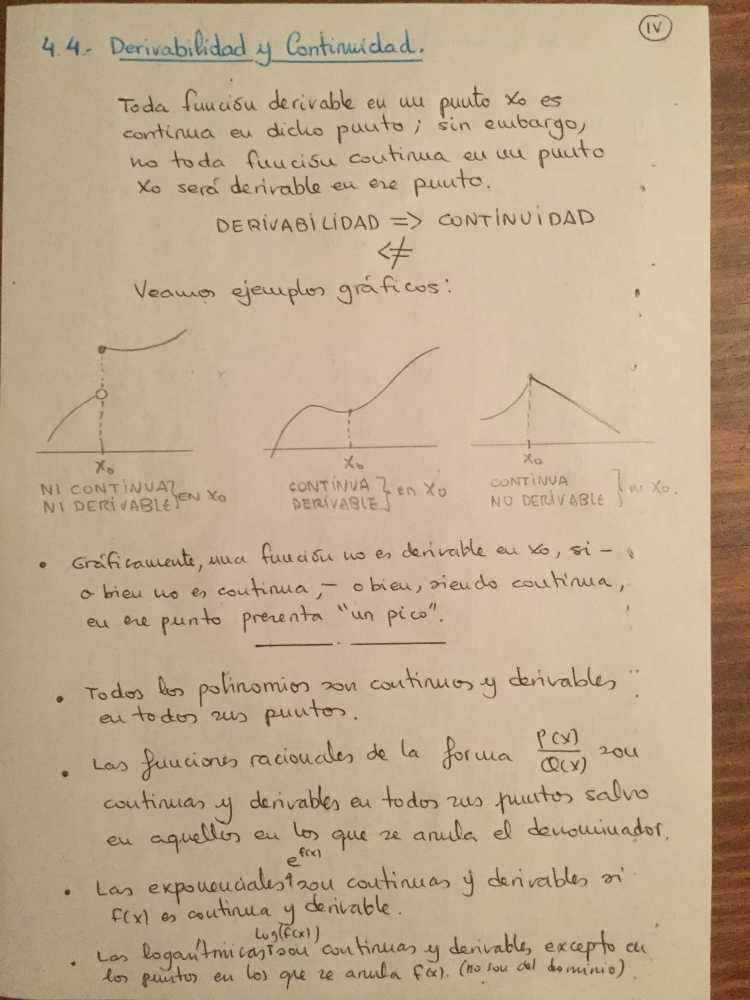 IV
4.4.- Derivabilidad y Continuidad.
Toda función derivable en un punto x₀ es
continua en dicho punto; sin embargo,
no toda función continua en un punto
x₀ será derivable en ese punto.
DERIVABILIDAD => CONTINUIDAD
<≠
Veamos ejemplos gráficos:
x₀
NI CONTINUA
NI DERIVABLE } EN x₀
x₀
CONTINUA
DERIVABLE } en x₀
x₀
CONTINUA
NO DERIVABLE } en x₀.
• Gráficamente, una función no es derivable en x₀, si -
o bien no es continua, - o bien, siendo continua,
en ese punto presenta "un pico".
• Todos los polinomios son continuos y derivables
en todos sus puntos.
• Las funciones racionales de la forma P(x)/Q(x) son
continuas y derivables en todos sus puntos salvo
en aquellos en los que se anula el denominador.
• Las exponenciales e^f(x) son continuas y derivables si
f(x) es continua y derivable.
• Las logarítmicas Log(f(x)) son continuas y derivables excepto en
los puntos en los que se anula f(x). (no son del dominio).